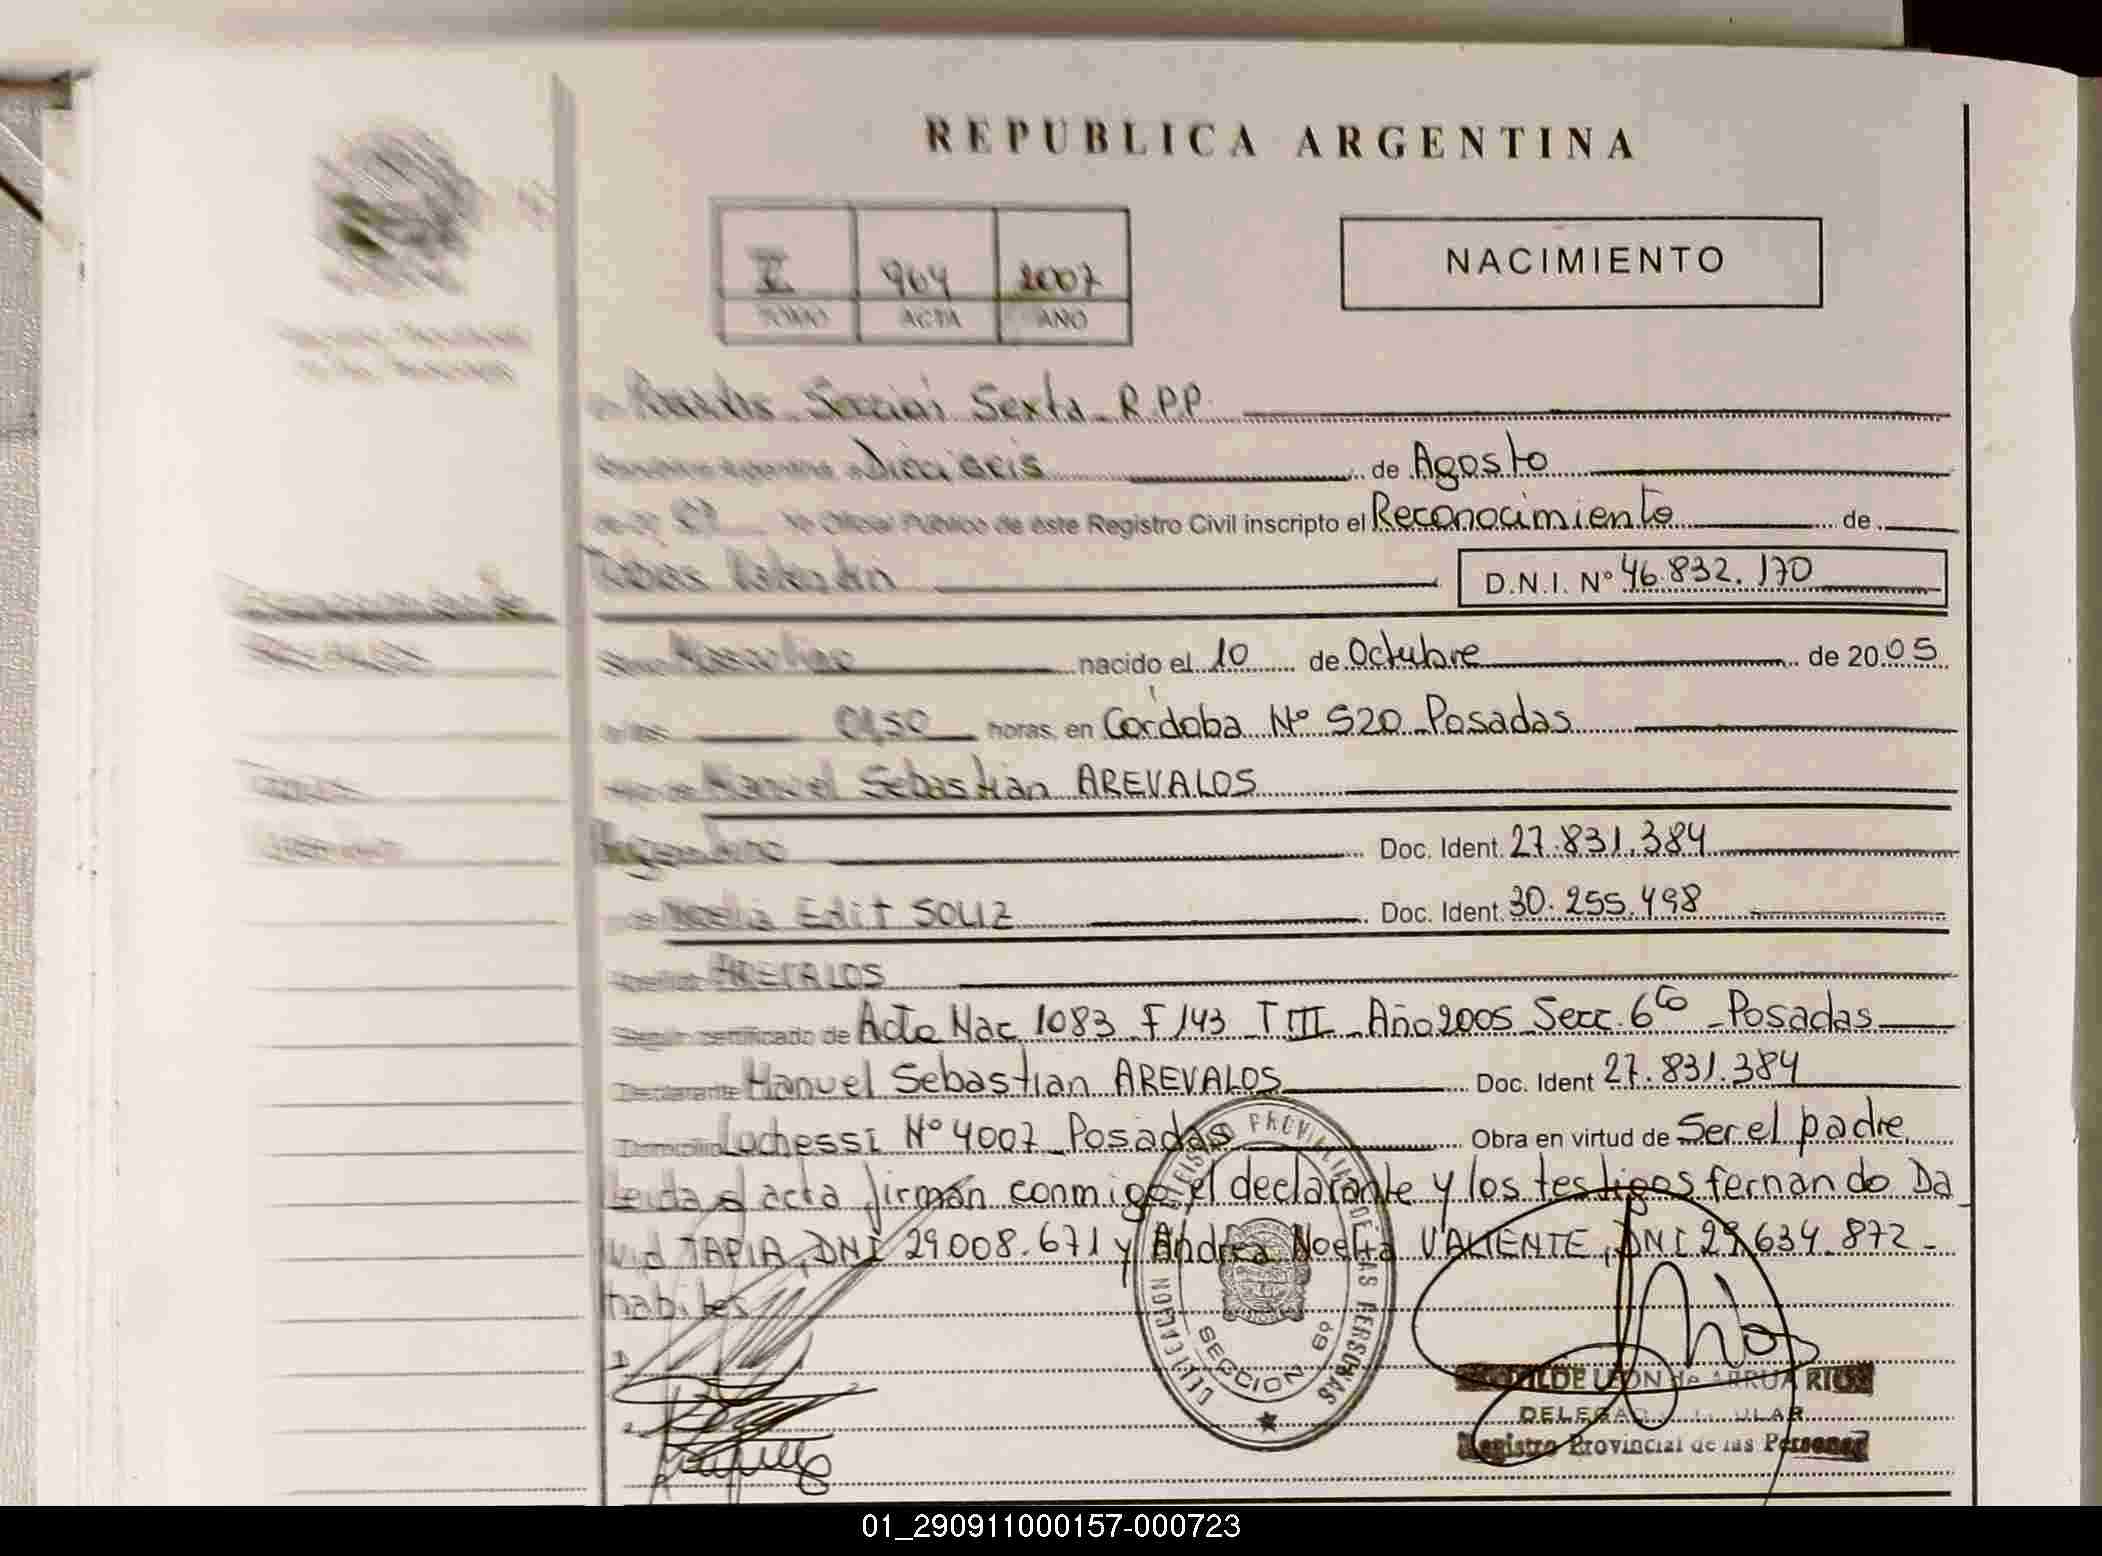 REPUBLICA ARGENTINA
V 964 2007
TOMO ACTA AÑO
NACIMIENTO
Sección Sexta R.P.P.
República Argentina, a Dieciseis de Agosto
de 20 07 Yo Oficial Público de este Registro Civil inscripto el Reconocimiento de
Tobias Valentin D.N.I. Nº 46.832.170
Reconocimiento
AREVALOS
Sexo Masculino nacido el 10 de Octubre de 2005
a las 01,50 horas, en Córdoba Nº 520 Posadas
Tobias
Hijo de Manuel Sebastian AREVALOS
Valentin
Argentino Doc. Ident. 27.831.384
y de Noelia Edit SOLIZ Doc. Ident. 30.255.498
Apellido AREVALOS
Según certificado de Acta Nac 1083 F 143 T III Año 2005 Secc. 6ta Posadas
Declarante Manuel Sebastian AREVALOS Doc. Ident 27.831.384
Domicilio Luchessi Nº 4007 Posadas Obra en virtud de Ser el padre
Leida el acta firman conmigo el declarante y los testigos fernando Da
vid TAPIA, DNI 29.008.671 y Andrea Noelia VALIENTE, DNI 29.634.872 -
habiles
REGISTRO PROVINCIAL DE LAS PERSONAS
DELEGACION
SECCION 6º
LEON de ARRUA RIOS
DELEGADA TITULAR
Registro Provincial de las Personas
01_290911000157-000723